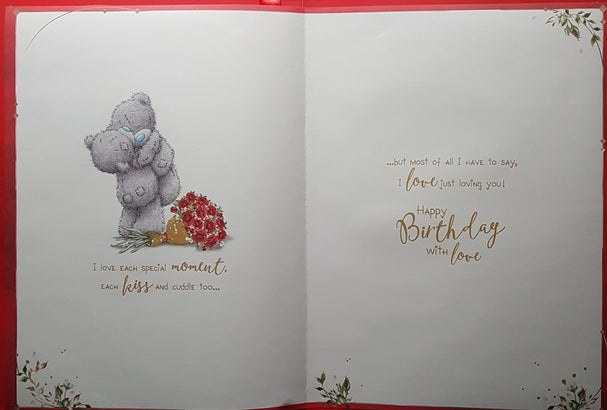 I love each special moment,
each kiss and cuddle too...
...but most of all I have to say,
I love just loving you!
Happy
Birthday
with love